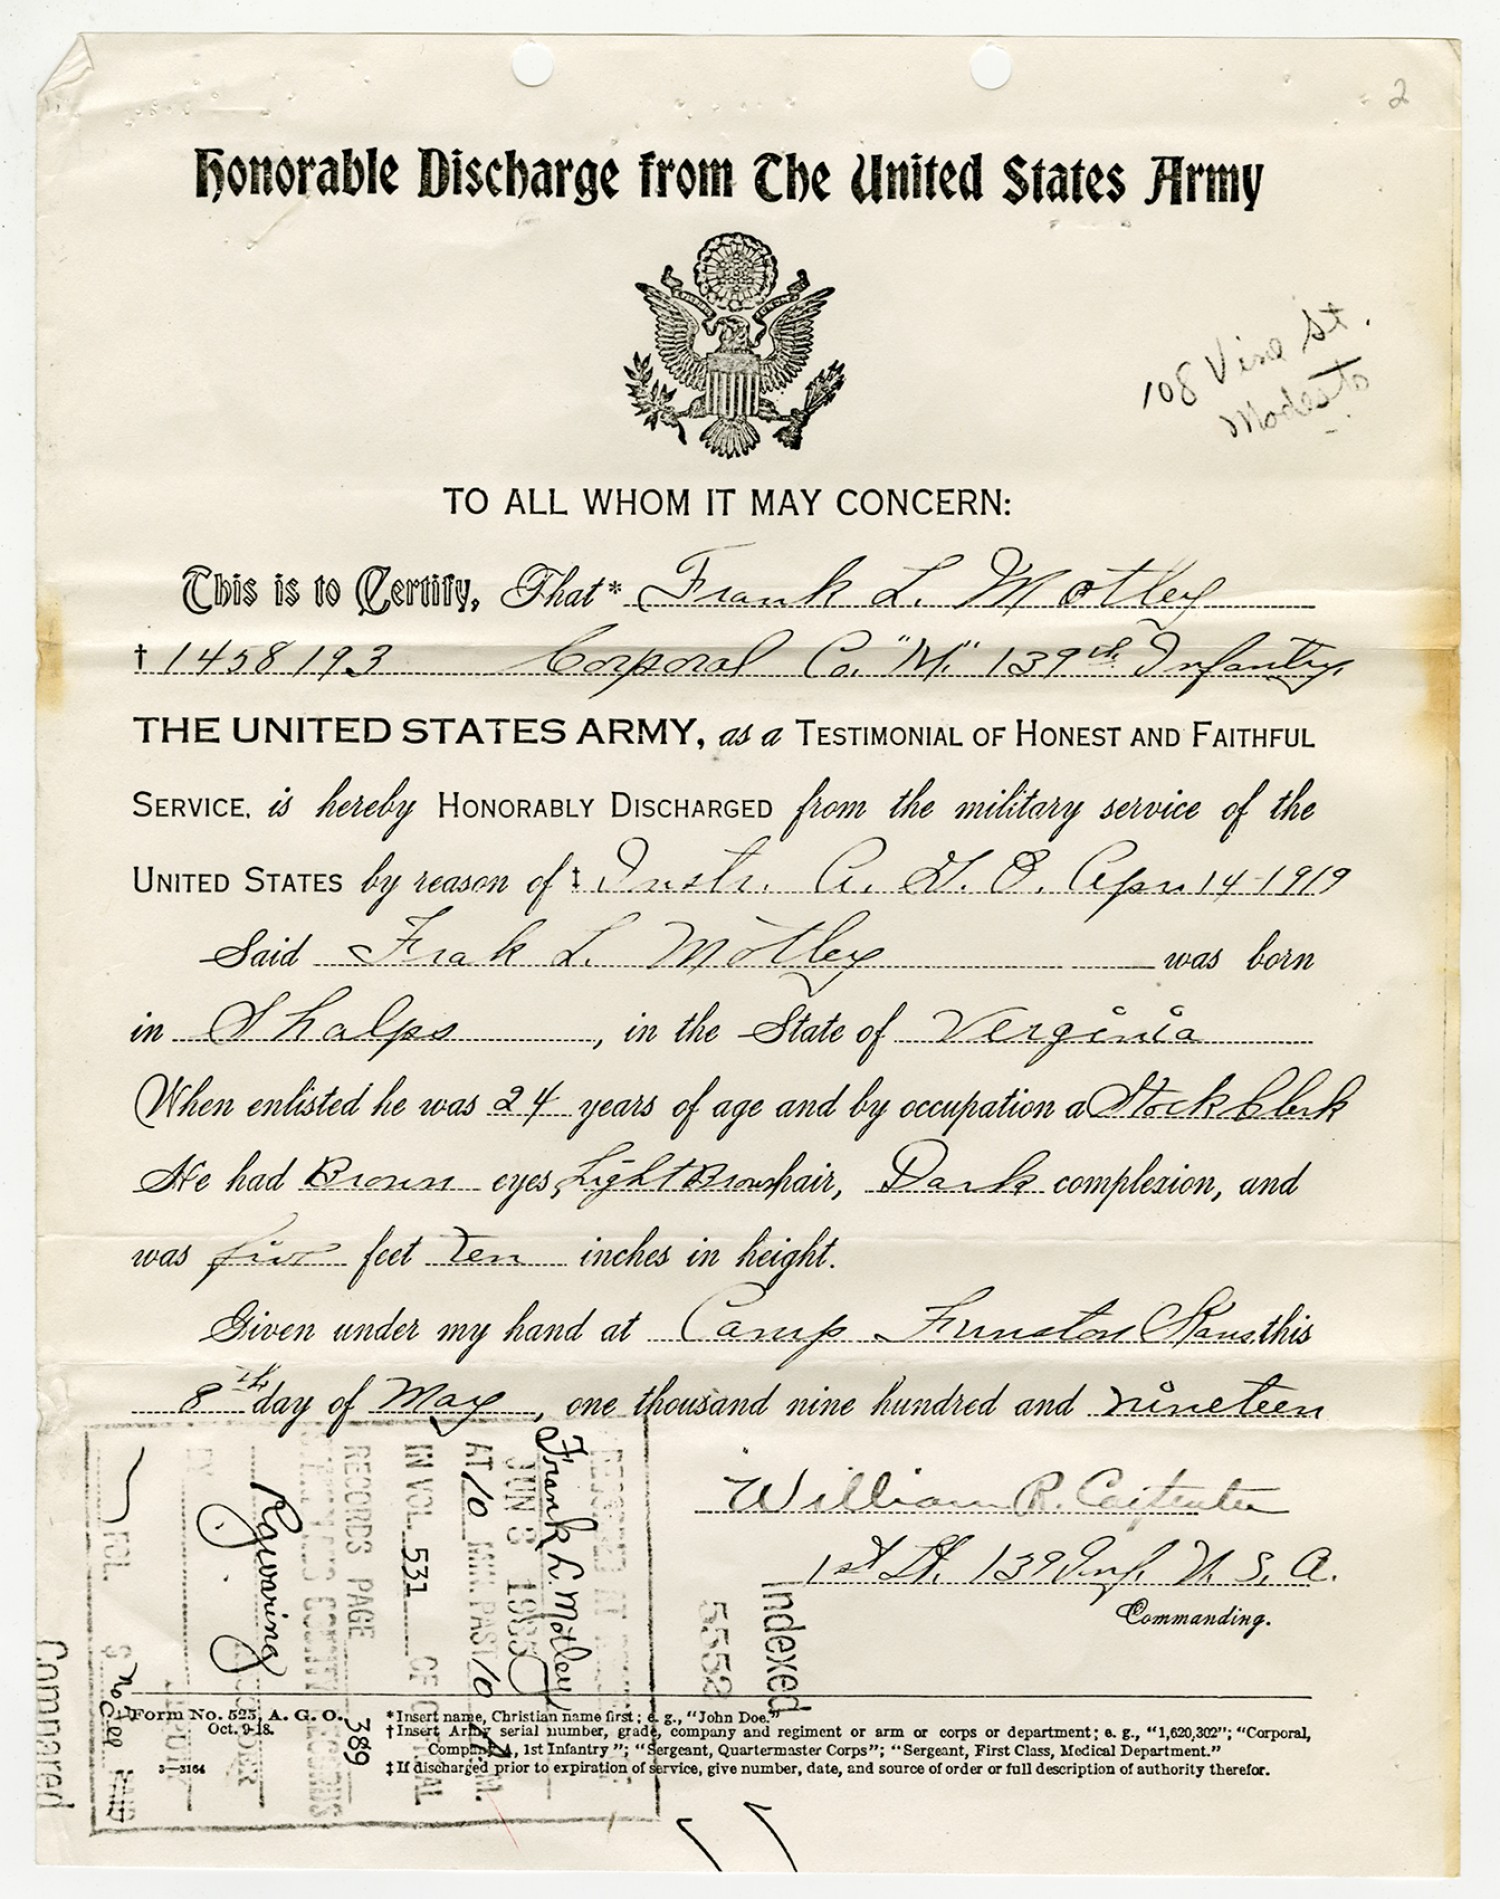 2
Honorable Discharge from The United States Army
108 Vine St.
Modesto
TO ALL WHOM IT MAY CONCERN:
This is to Certify, That* Frank L. Motley
† 1458193 Corporal Co. "M" 139th Infantry.
THE UNITED STATES ARMY, as a TESTIMONIAL OF HONEST AND FAITHFUL
SERVICE, is hereby HONORABLY DISCHARGED from the military service of the
UNITED STATES by reason of ‡ Instr. A. G. O. Apr. 14-1919
Said Frak L. Motley was born
in Shalps, in the State of Verginia
When enlisted he was 24 years of age and by occupation a Stock Clerk
He had Brown eyes, Light Brown hair, Dark complexion, and
was five feet ten inches in height.
Given under my hand at Camp Funston Kans. this
8th day of May, one thousand nine hundred and nineteen
William R. Carpenter
1st Lt. 139 Inf. U. S. A.
Commanding.
Frank L. Motley
JUN 3 1935
AT 10 MIN. PAST 10 M.
IN VOL. 531 OF OFFICIAL
RECORDS PAGE 389
COUNTY RECORDS
RECORDER
FOL.
No Fee
Compared
Indexed
5552
Form No. 525, A. G. O.
Oct. 9-18.
3—3164
*Insert name, Christian name first; e. g., "John Doe."
†Insert Army serial number, grade, company and regiment or arm or corps or department; e. g., "1,620,302"; "Corporal,
Company A, 1st Infantry"; "Sergeant, Quartermaster Corps"; "Sergeant, First Class, Medical Department."
‡If discharged prior to expiration of service, give number, date, and source of order or full description of authority therefor.